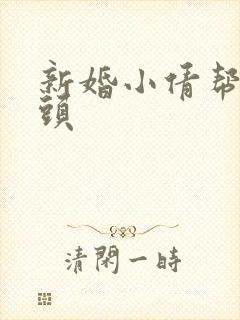 新婚小倩帮
頭
清閑一時